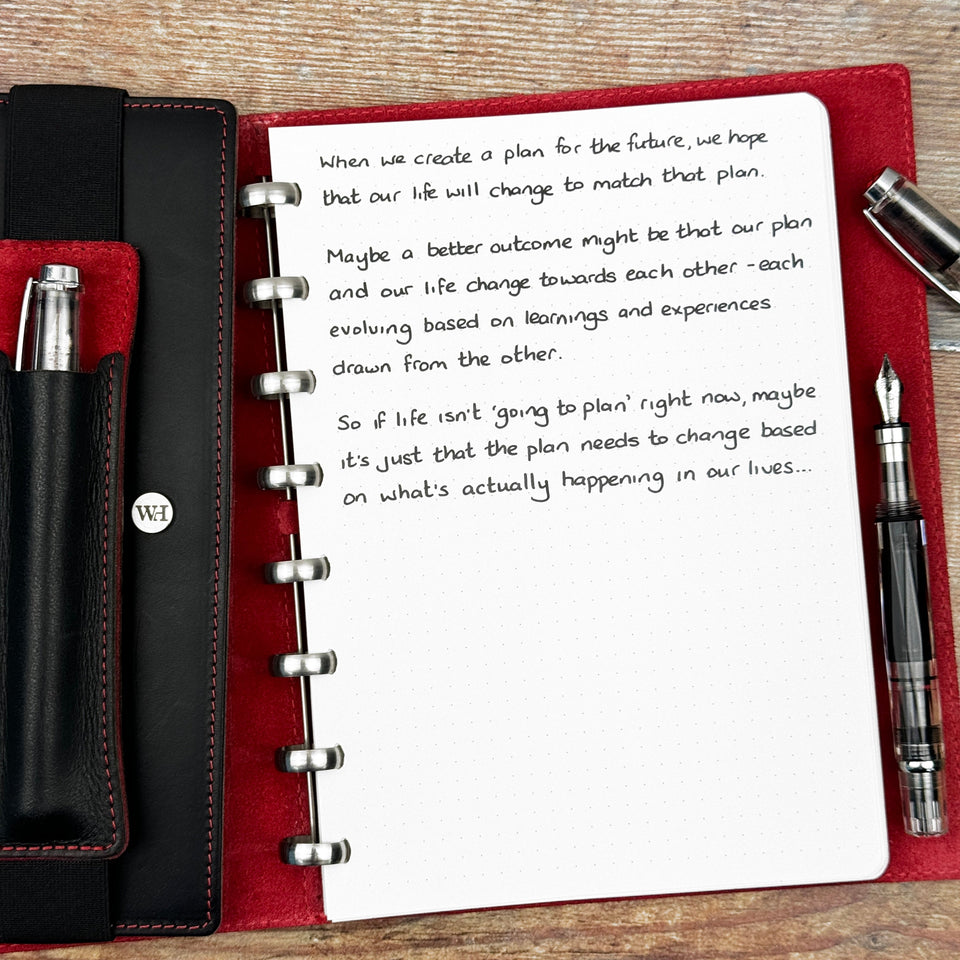 When we create a plan for the future, we hope
that our life will change to match that plan.
Maybe a better outcome might be that our plan
and our life change towards each other - each
evolving based on learnings and experiences
drawn from the other.
So if life isn't 'going to plan' right now, maybe
it's just that the plan needs to change based
on what's actually happening in our lives...
WH